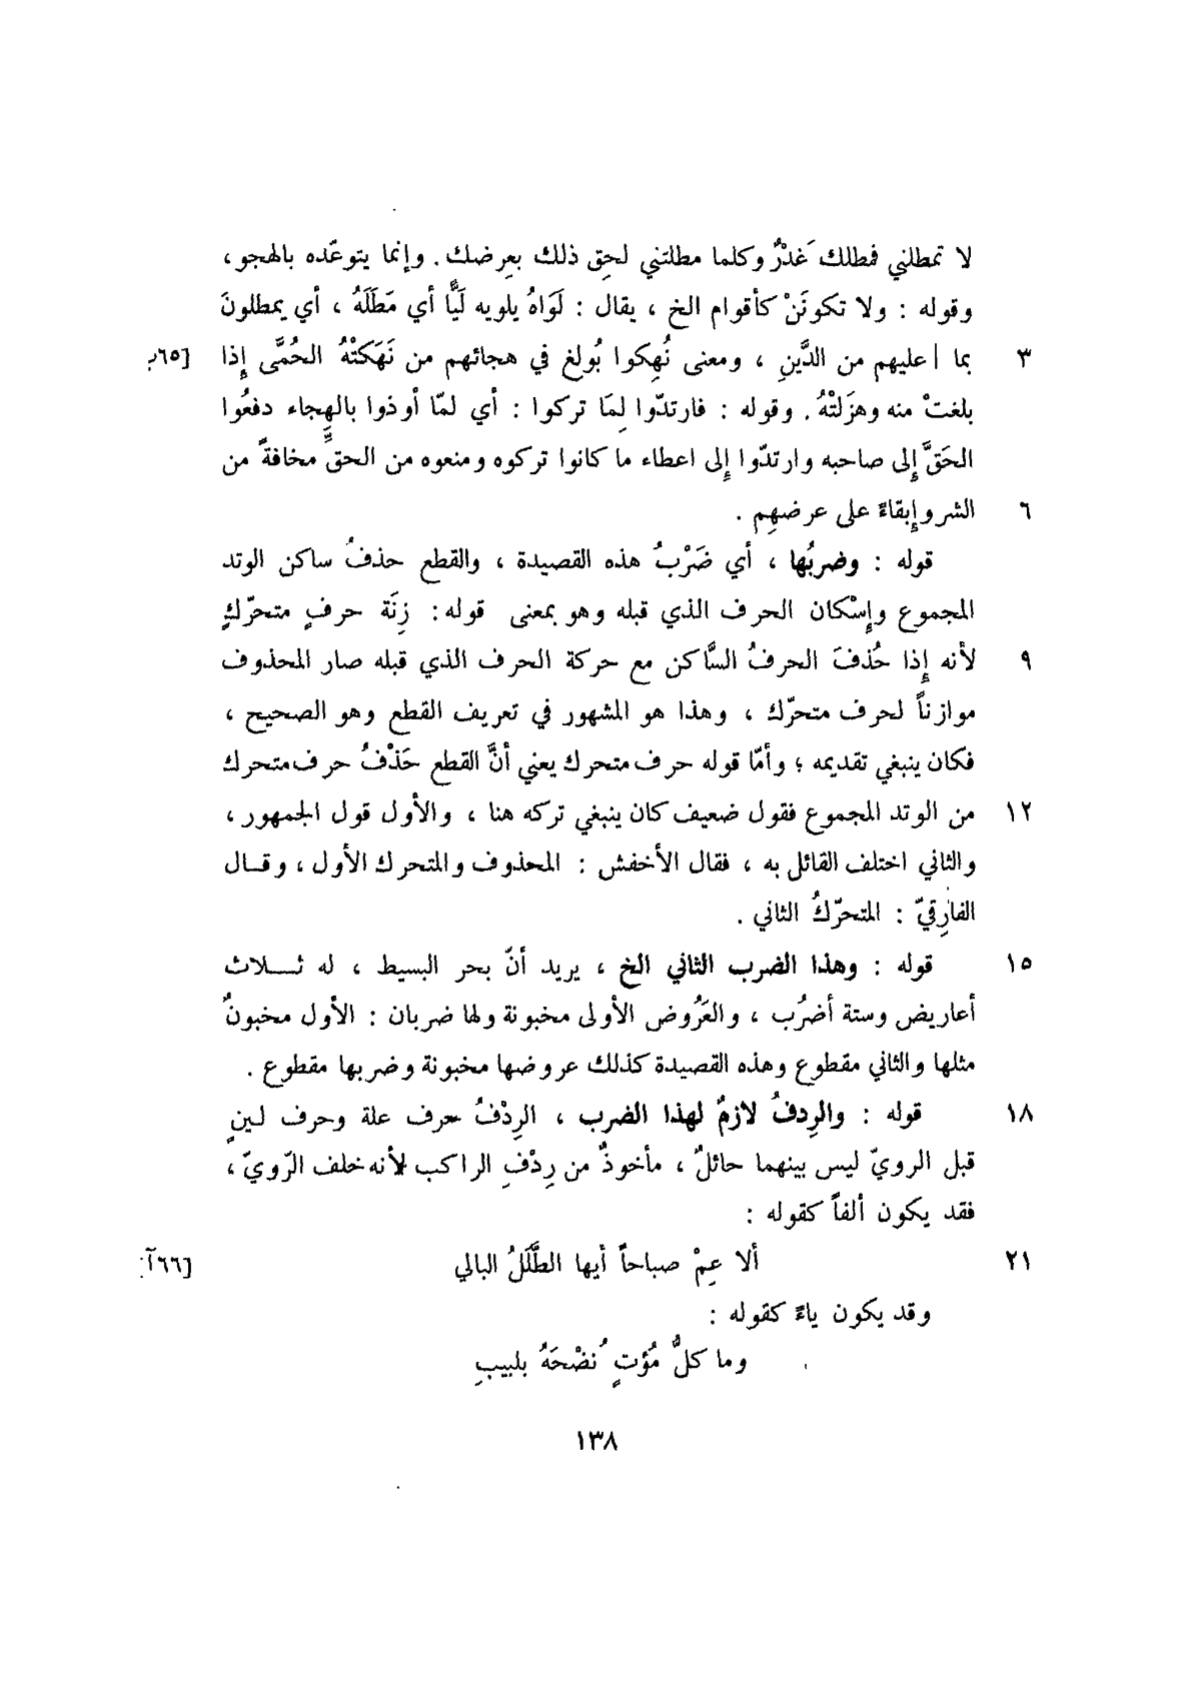 لا تمطلني فمطلك غَدْرٌ وكلما مطلتني لحِق ذلك بعِرضك . وإنما يتوعّده بالهجو ،
وقوله : ولا تكونَنْ كأقوام الخ ، يقال : لَوَاهُ يلويه لَيًّا أي مَطَلَهُ ، أي يمطلونَ
٣ بما | عليهم من الدَّينِ ، ومعنى نُهِكوا بُولِغ في هجائهم من نَهَكتْهُ الحُمَّى إِذا [٦٥ب
بلغتْ منه وهزَلتْهُ . وقوله : فارتدّوا لِمَا تركوا : أي لمّا أوذوا بالهِجاء دفعُوا
الحَقَّ إِلى صاحبه وارتدّوا إِلى اعطاء ما كانوا تركوه ومنعوه من الحقِّ مخافةً من
٦ الشر وإِبقاءً على عرضهِم .
قوله : وضربُها ، أي ضَرْبُ هذه القصيدة ، والقطع حذفُ ساكن الوتد
المجموع وإِسْكان الحرف الذي قبله وهو بمعنى قوله : زِنَة حرفٍ متحرّكٍ
٩ لأنه إِذا حُذفَ الحرفُ السَّاكن مع حركة الحرف الذي قبله صار المحذوف
موازناً لحرف متحرّك ، وهذا هو المشهور في تعريف القطع وهو الصحيح ،
فكان ينبغي تقديمه ؛ وأمّا قوله حرف متحرك يعني أنَّ القطع حَذْفُ حرف متحرك
١٢ من الوتد المجموع فقول ضعيف كان ينبغي تركه هنا ، والأول قول الجمهور ،
والثاني اختلف القائل به ، فقال الأخفش : المحذوف والمتحرك الأول ، وقال
الفارِقيّ : المتحرّكُ الثاني .
١٥ قوله : وهذا الضرب الثاني الخ ، يريد أنّ بحر البسيط ، له ثلاث
أعاريض وستة أضرُب ، والعَرُوض الأولى مخبونة ولها ضربان : الأول مخبونٌ
مثلها والثاني مقطوع وهذه القصيدة كذلك عروضها مخبونة وضربها مقطوع .
١٨ قوله : والرِدفُ لازمٌ لهذا الضرب ، الرِدْفُ حرف علة وحرف لينٍ
قبل الرويّ ليس بينهما حائلٌ ، مأخوذٌ من رِدْفِ الراكب لأنه خلف الرّويّ ،
فقد يكون ألفاً كقوله :
٢١ ألا عِمْ صباحاً أيها الطَّلَلُ البالي [٦٦آ
وقد يكون ياءً كقوله :
وما كلُّ مُؤتٍ نُضْحَهُ بلبيبِ
١٣٨